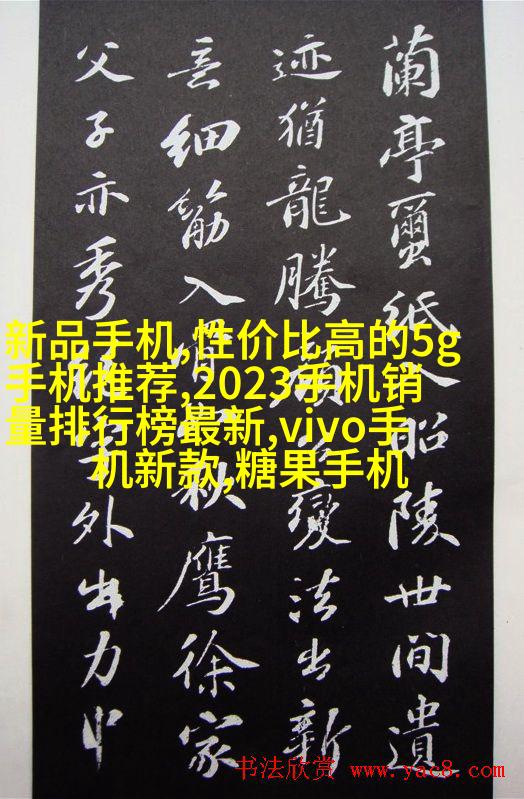 蘭亭蠒紙入昭陵世間遺
迹猶龍騰顏公變法出新
意細筋入骨秋鷹徐家
父子亦秀外出力中
新品手机,性价比高的5g
手机推荐,2023手机销
量排行榜最新,vivo手
机新款,糖果手机
书法欣赏 www.yac8.com